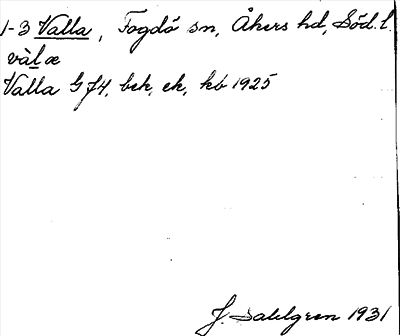 1-3 Valla, Fogdö sn, Åkers hd, Söd. l.
vàlæ
Valla GJ4, bek, ek, kb 1925
J. Sahlgren 1931